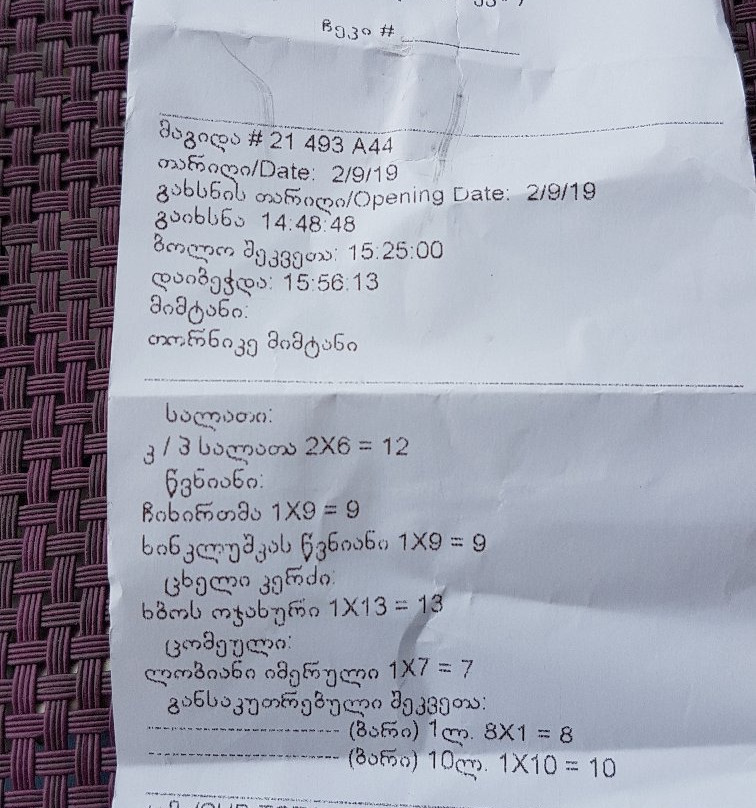 ჩეკი #
მაგიდა # 21 493 A44
თარიღი/Date: 2/9/19
გახსნის თარიღი/Opening Date: 2/9/19
გაიხსნა 14:48:48
ბოლო შეკვეთა: 15:25:00
დაიბეჭდა: 15:56:13
მიმტანი:
თორნიკე მიმტანი
სალათი:
კ / პ სალათა 2X6 = 12
წვნიანი:
ჩიხირთმა 1X9 = 9
ხინკლუშკას წვნიანი 1X9 = 9
ცხელი კერძი:
ხბოს ოჯახური 1X13 = 13
ცომეული:
ლობიანი იმერული 1X7 = 7
განსაკუთრებული შეკვეთა:
(ბარი) 1ლ. 8X1 = 8
(ბარი) 10ლ. 1X10 = 10